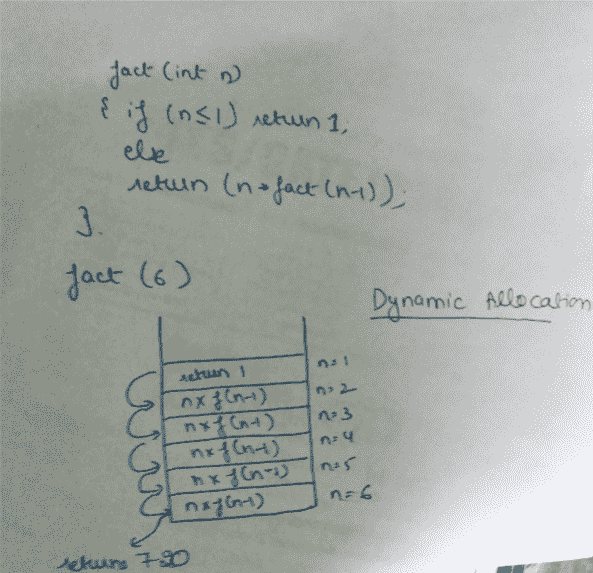 fact (int n)
{ if (n≤1) return 1,
else
return (n * fact (n-1));
}.
fact (6)
Dynamic Allocation
return 1 n=1
n x f(n-1) n=2
n x f(n-1) n=3
n x f(n-1) n=4
n x f(n-1) n=5
n x f(n-1) n=6
returns 720